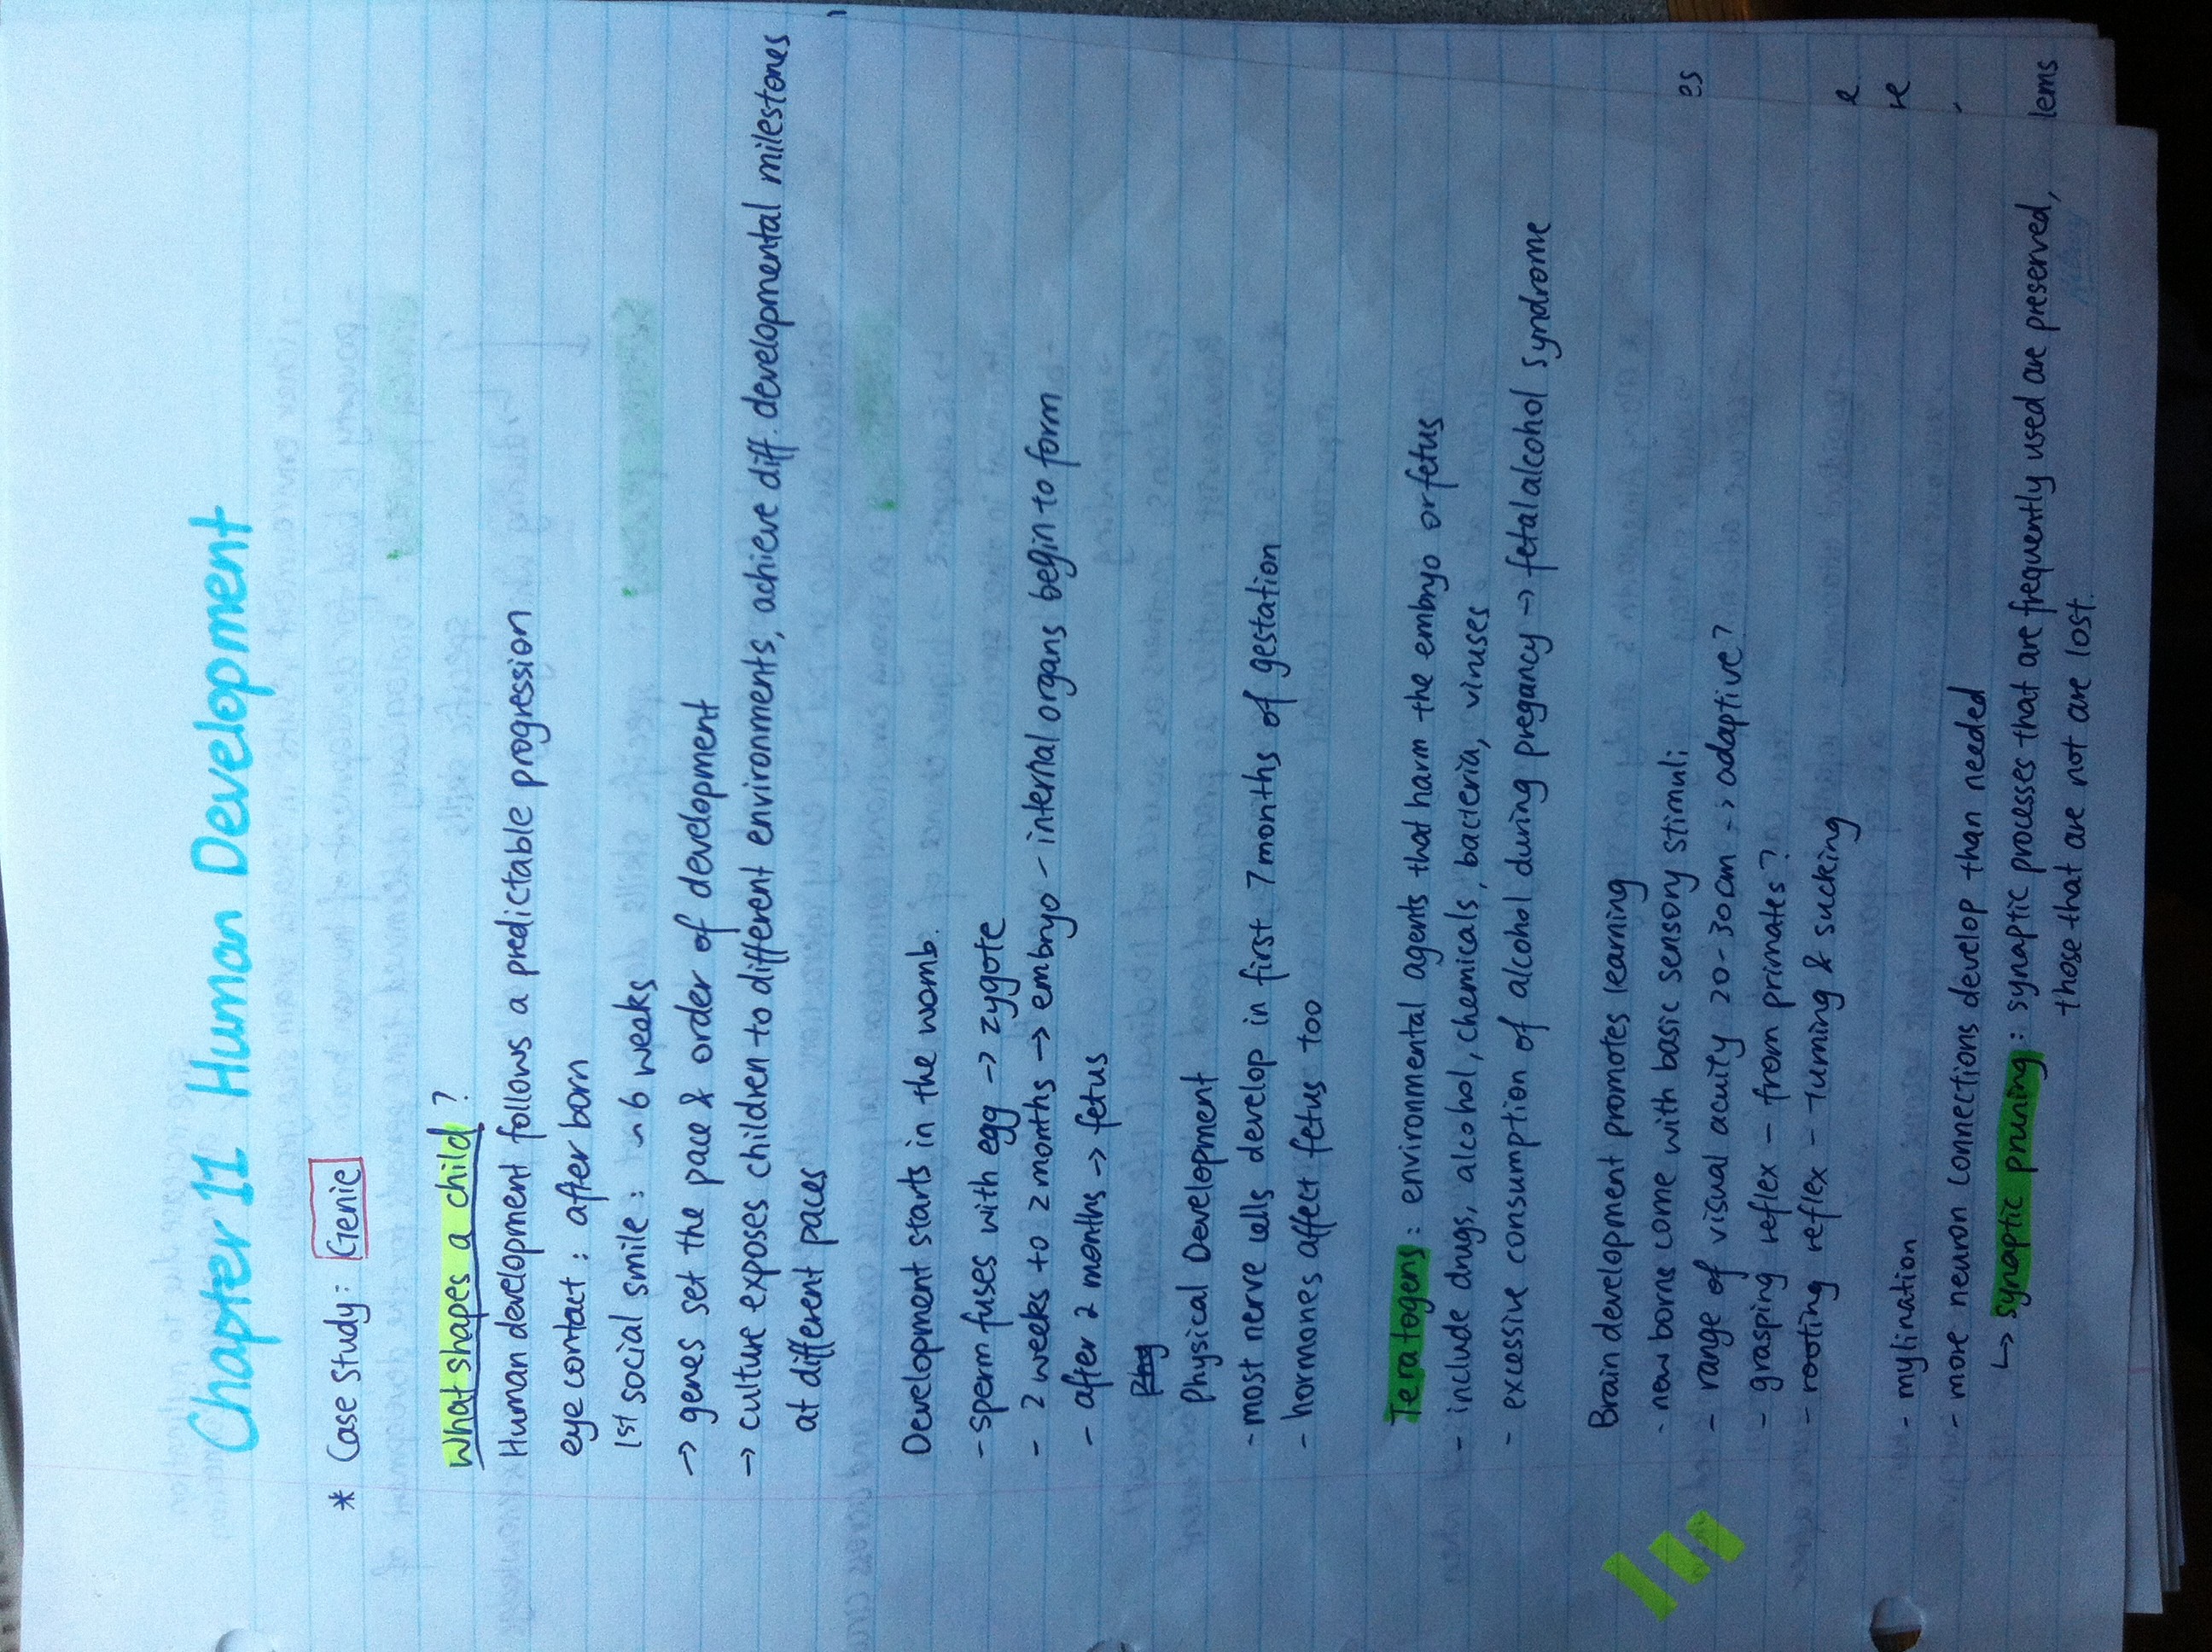 Chapter 11 Human Development
* Case Study: Genie
What shapes a child?
Human development follows a predictable progression
eye contact : after born
1st social smile : ~ 6 weeks
→ genes set the pace & order of development
→ culture exposes children to different environments, achieve diff. developmental milestones
at different paces
Development starts in the womb.
- sperm fuses with egg → zygote
- 2 weeks to 2 months → embryo - internal organs begin to form
- after 2 months → fetus
Physical Development
- most nerve cells develop in first 7 months of gestation
- hormones affect fetus too
Teratogens : environmental agents that harm the embryo or fetus
- include drugs, alcohol, chemicals, bacteria, viruses
- excessive consumption of alcohol during pregancy → fetal alcohol syndrome
Brain development promotes learning
- new borns come with basic sensory stimuli
es
- range of visual acuity 20-30cm → adaptive?
- grasping reflex - from primates?
- rooting reflex - turning & sucking
e
re
- mylination
- more neuron connections develop than needed
↳ synaptic pruning : synaptic processes that are frequently used are preserved,
lems
those that are not are lost.